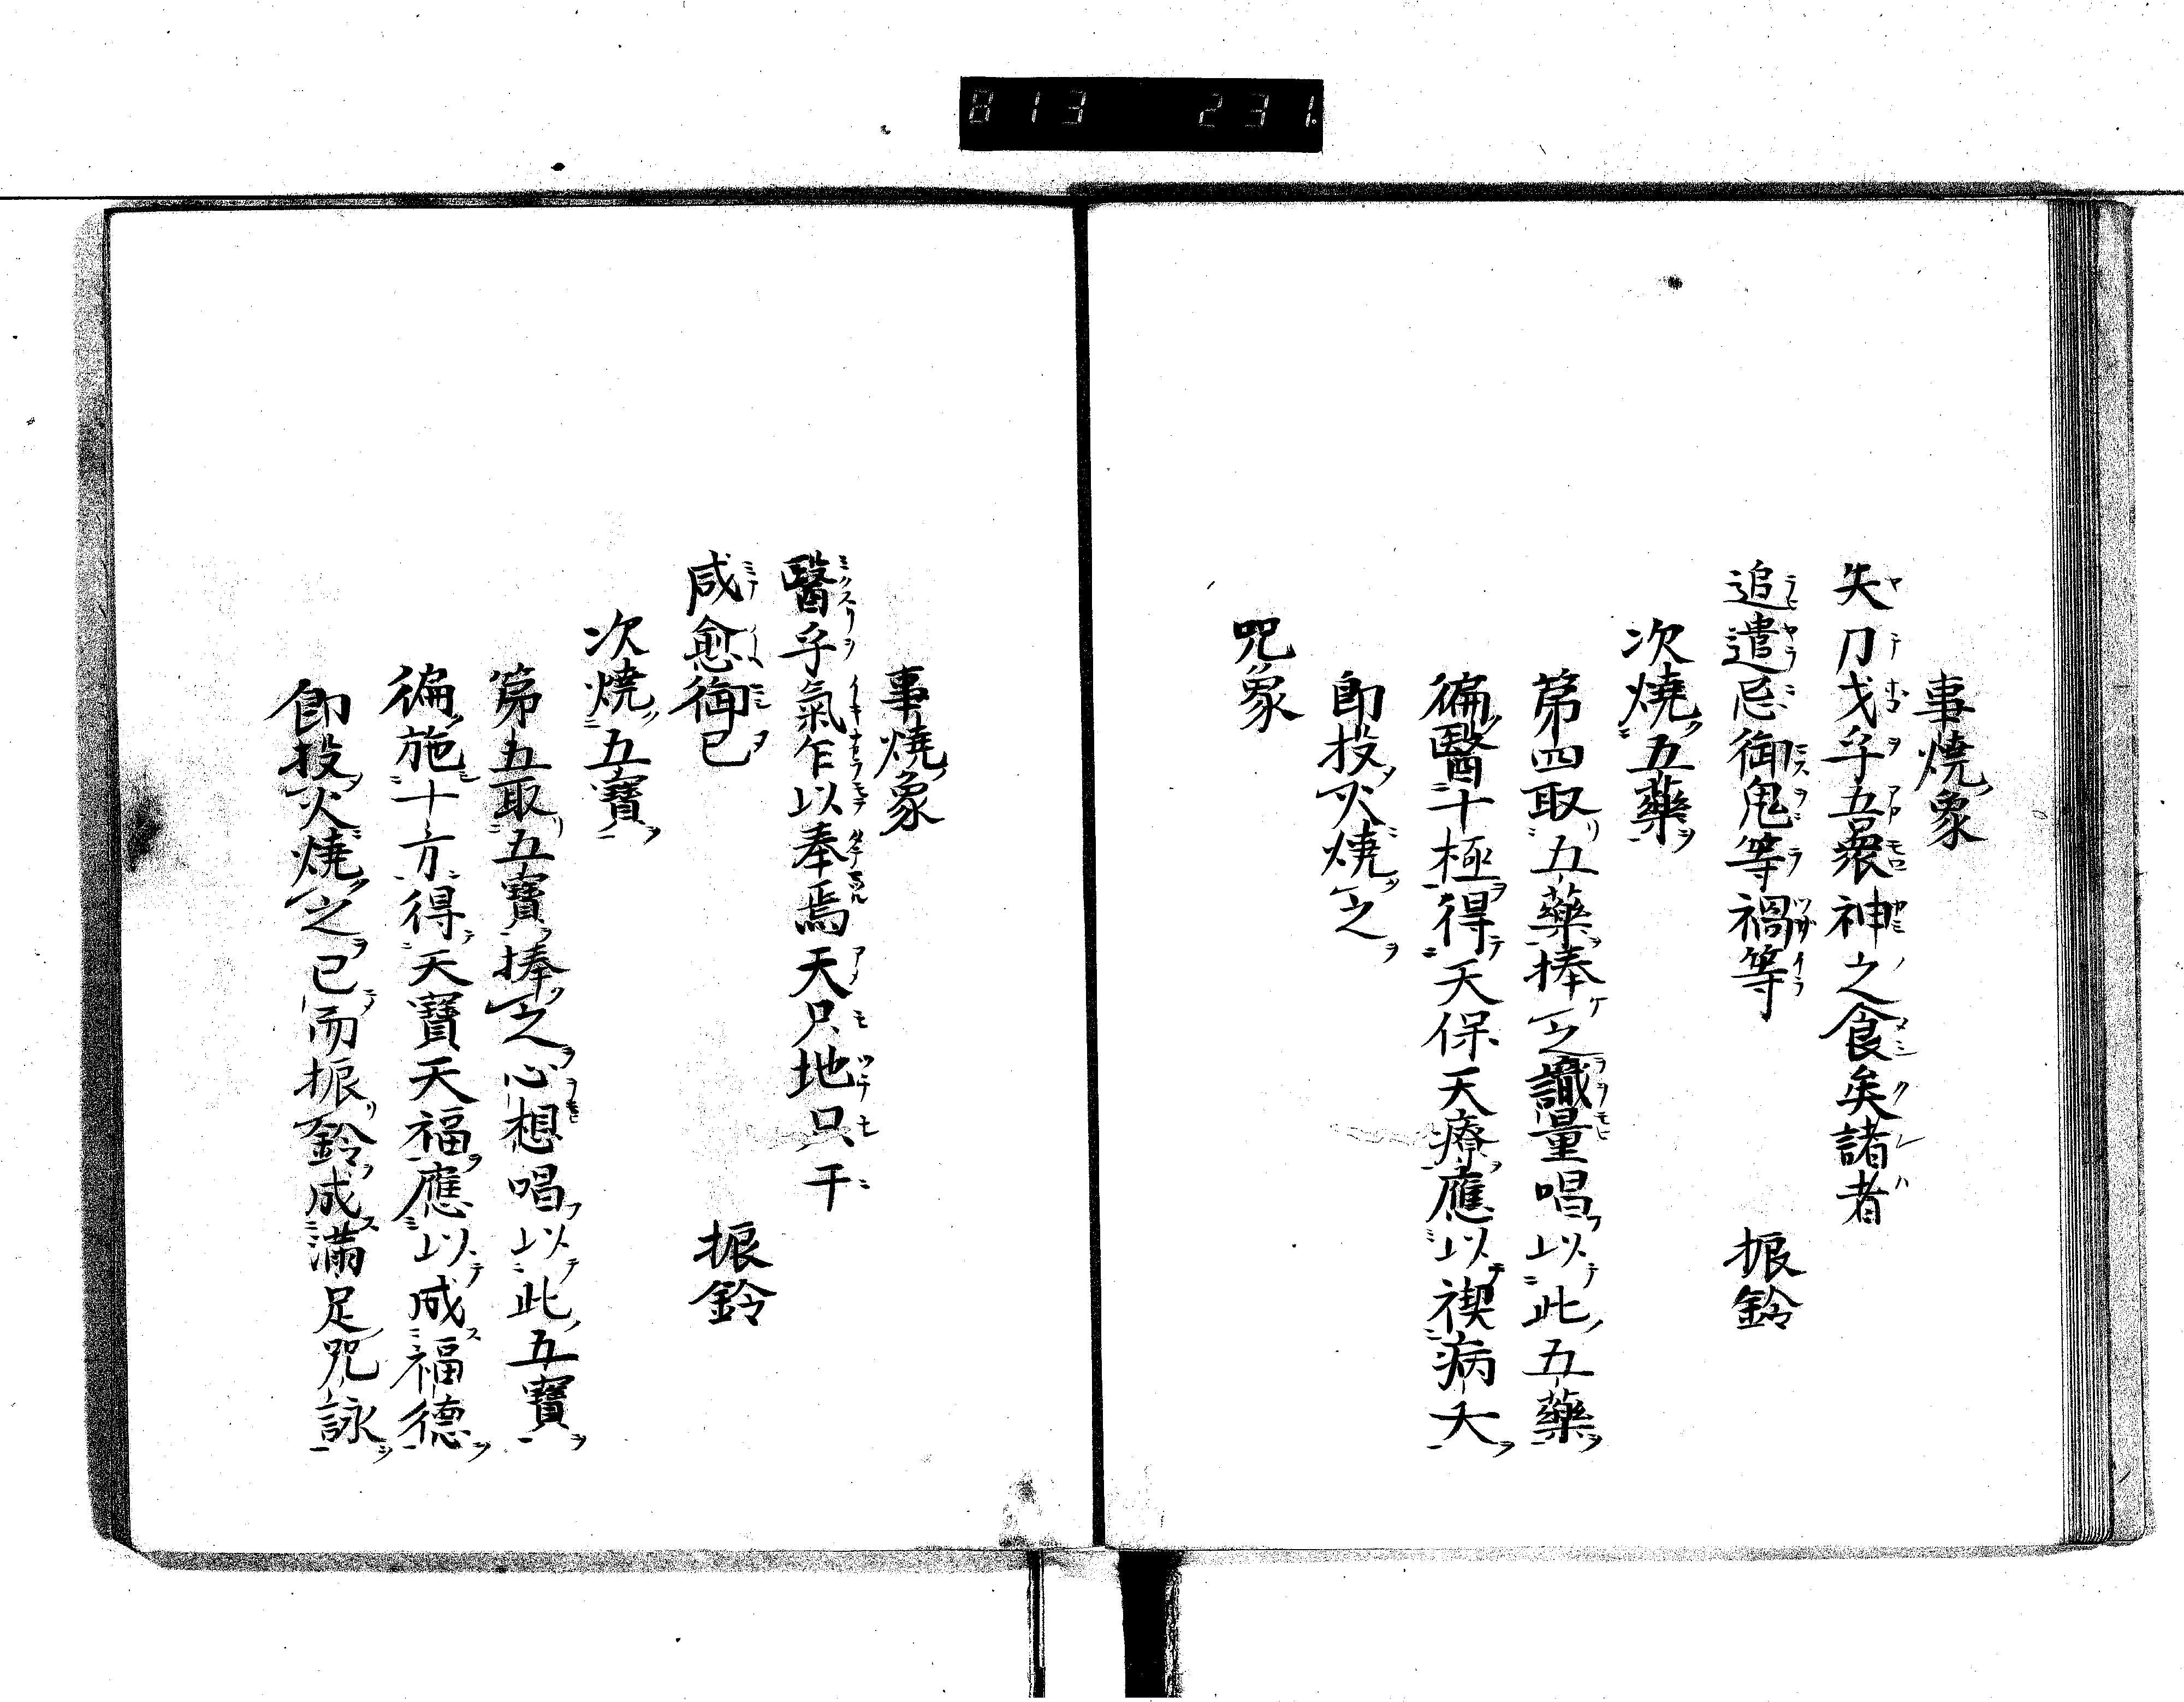 813 231
事燒象
矢刀戈乎五衆神之食矣諸者
追遣忌御鬼等禍等 振鈴
次燒五藥
第四取五藥捧之識量唱以此五藥
徧醫十極得天保天療應以禊病大
即投火燒之
咒象
事燒象
醫乎氣乍以奉焉天只地只干
咸愈御已 振鈴
次燒五寶
第五取五寶捧之心想唱以此五寶
徧施十方得天寶天福應以成福德
即投火燒之已而振鈴成滿足咒詠